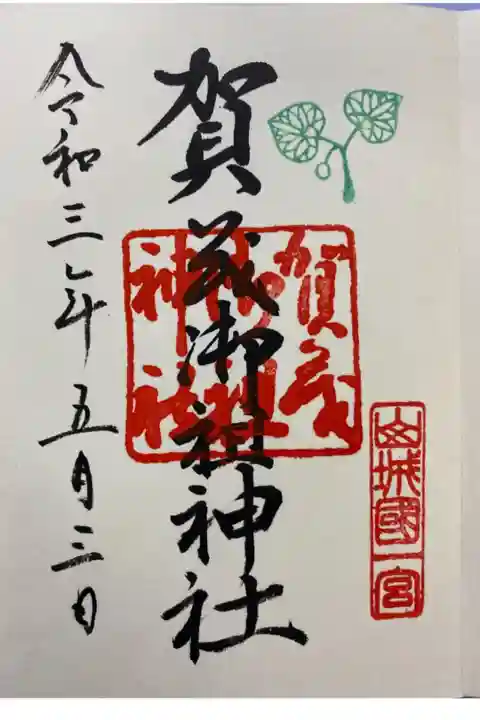 山城國一宮
賀茂御祖神社
賀茂
御祖
神社
令和三年五月三日